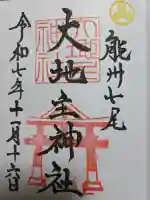 能州七尾
大地主神社
令和七年十一月十六日